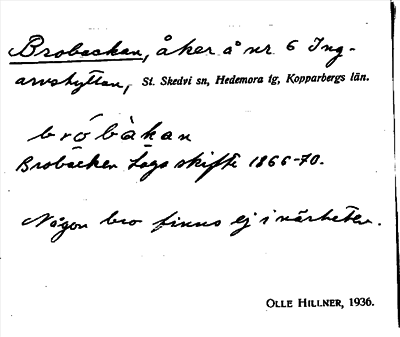 Brobackan, åker å nr 6 Ing-
arvshyttan, St. Skedvi sn, Hedemora tg, Kopparbergs län.
bróbàkan
Brobäcken Laga skifte 1866-70.
Någon bro finns ej i närheten.
OLLE HILLNER, 1936.